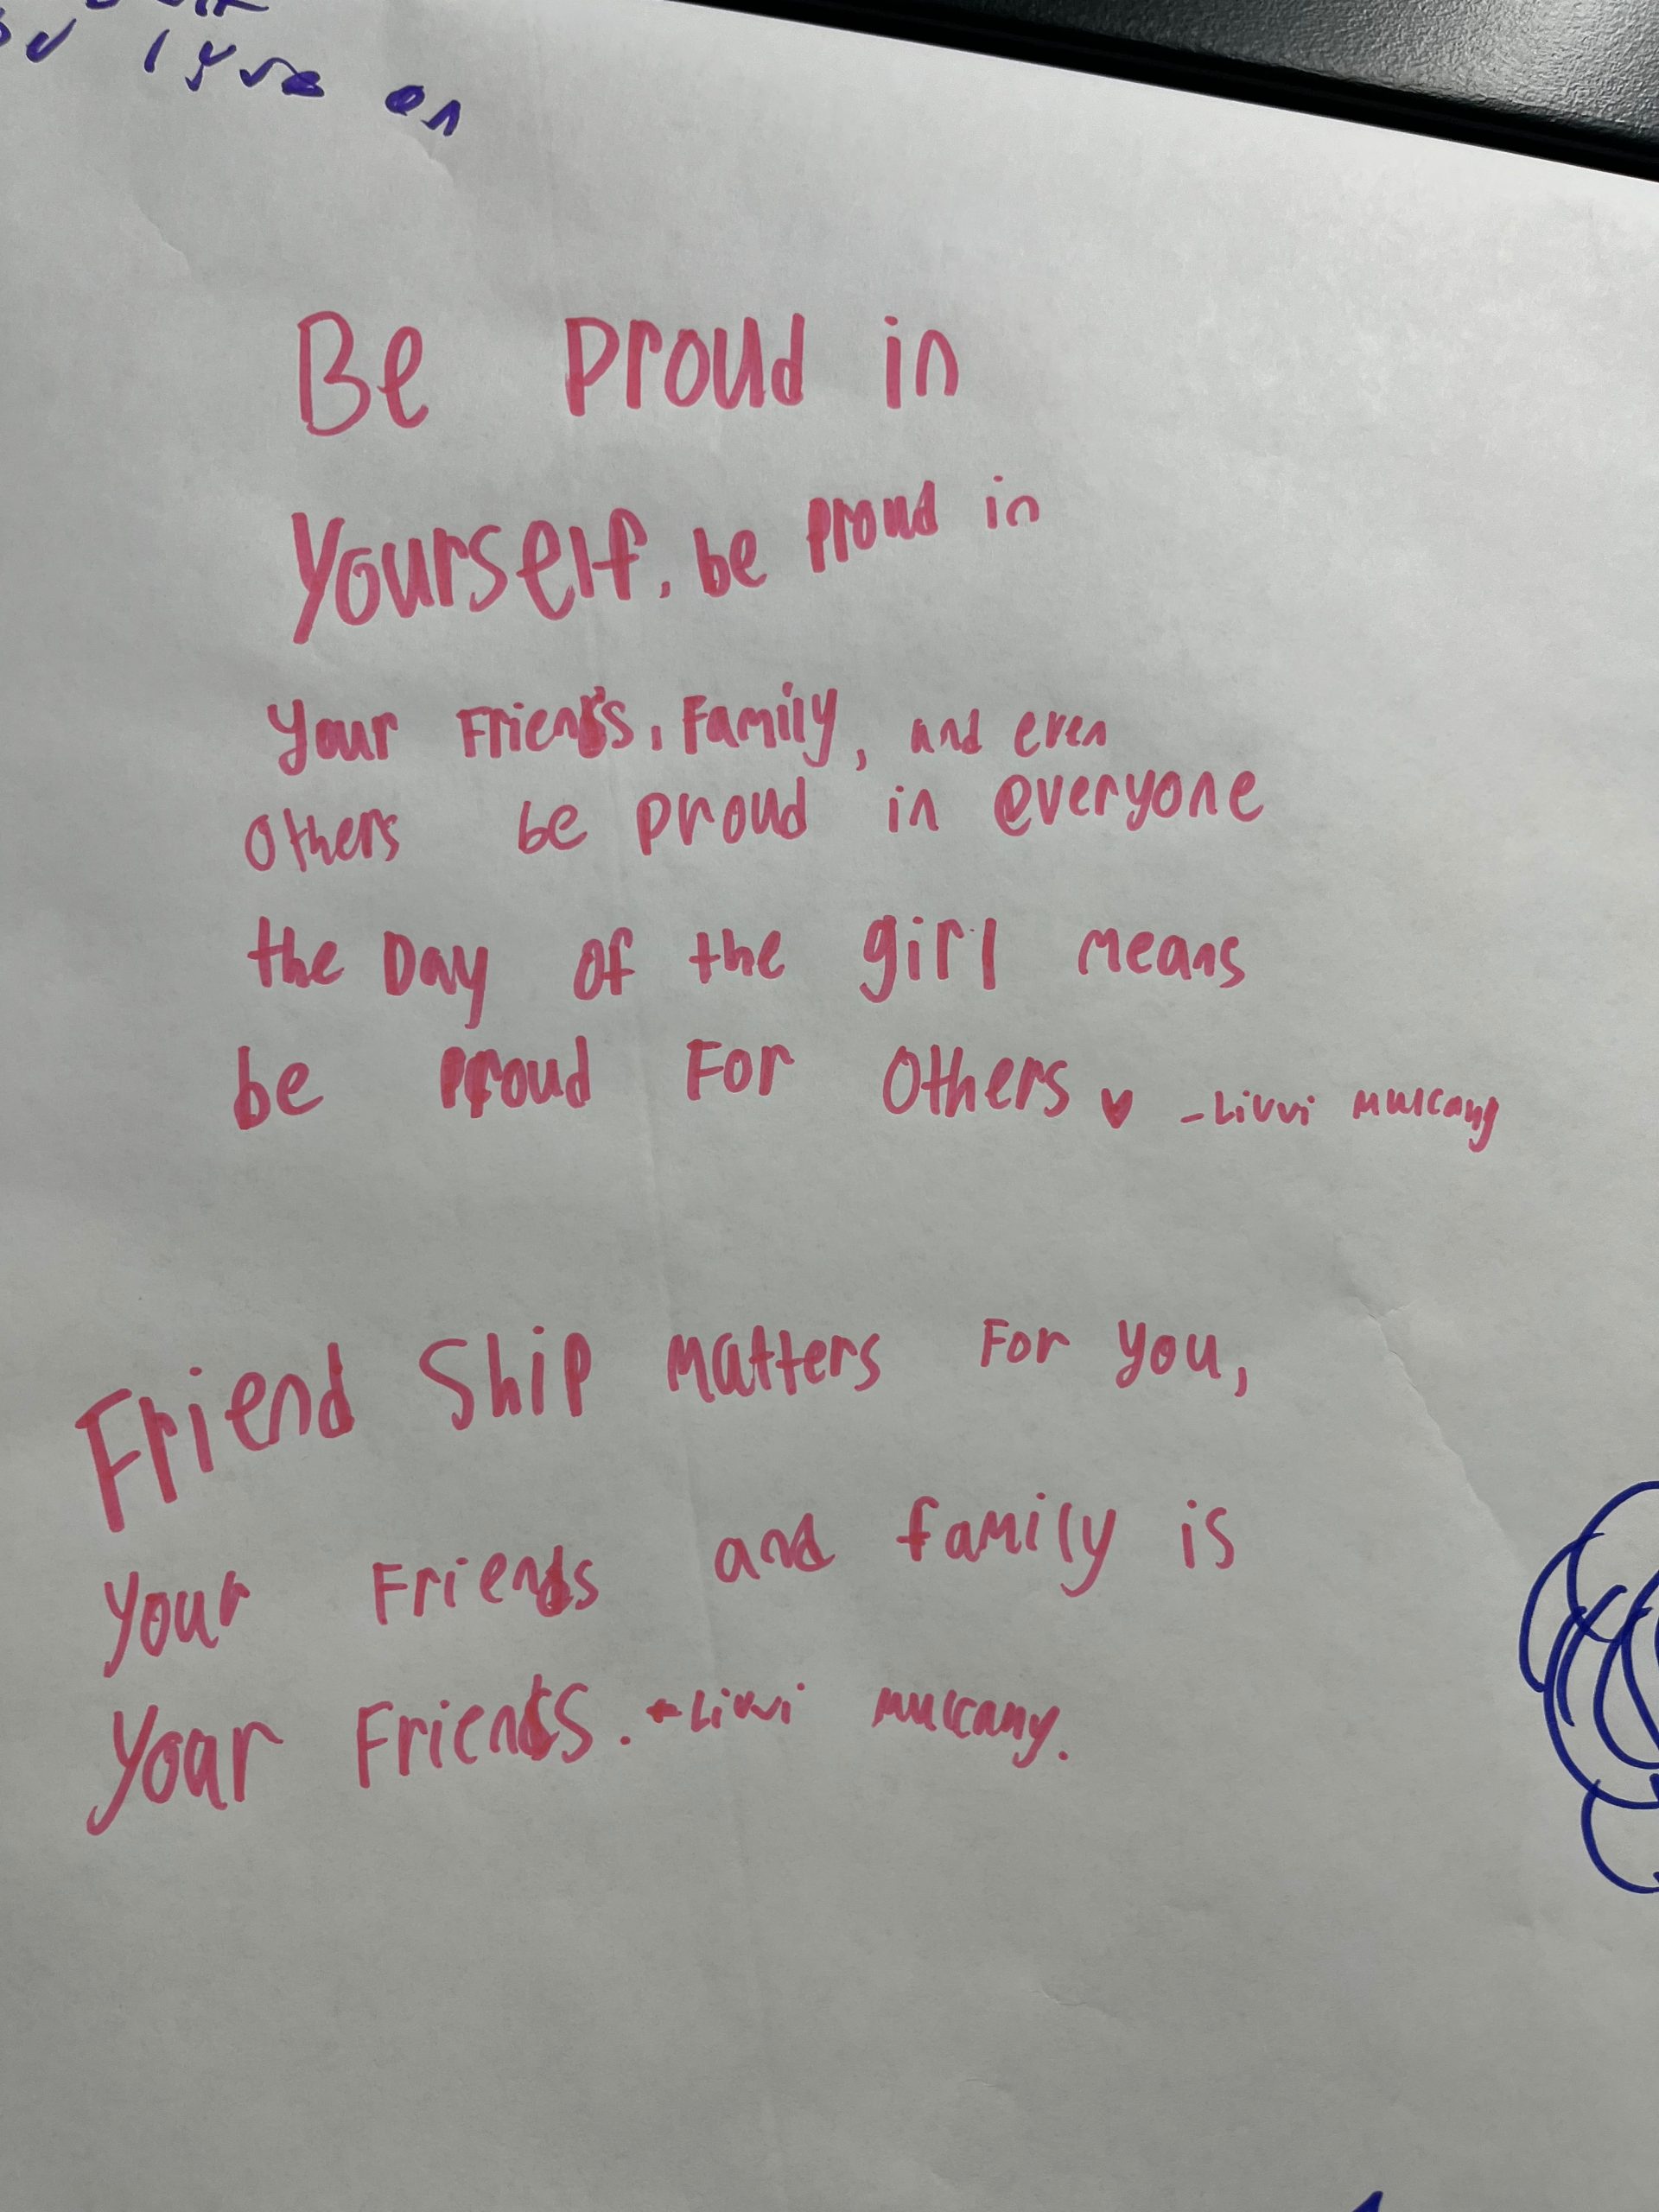 en
Be Proud in
Yourself, be proud in
your Friends, Family, and even
Others be proud in everyone
the Day of the girl means
be Proud For Others ♥ - Livvi Mulcany
Friend Ship Matters For you,
your Friends and family is
your Friends. - Livvi Mulcany.